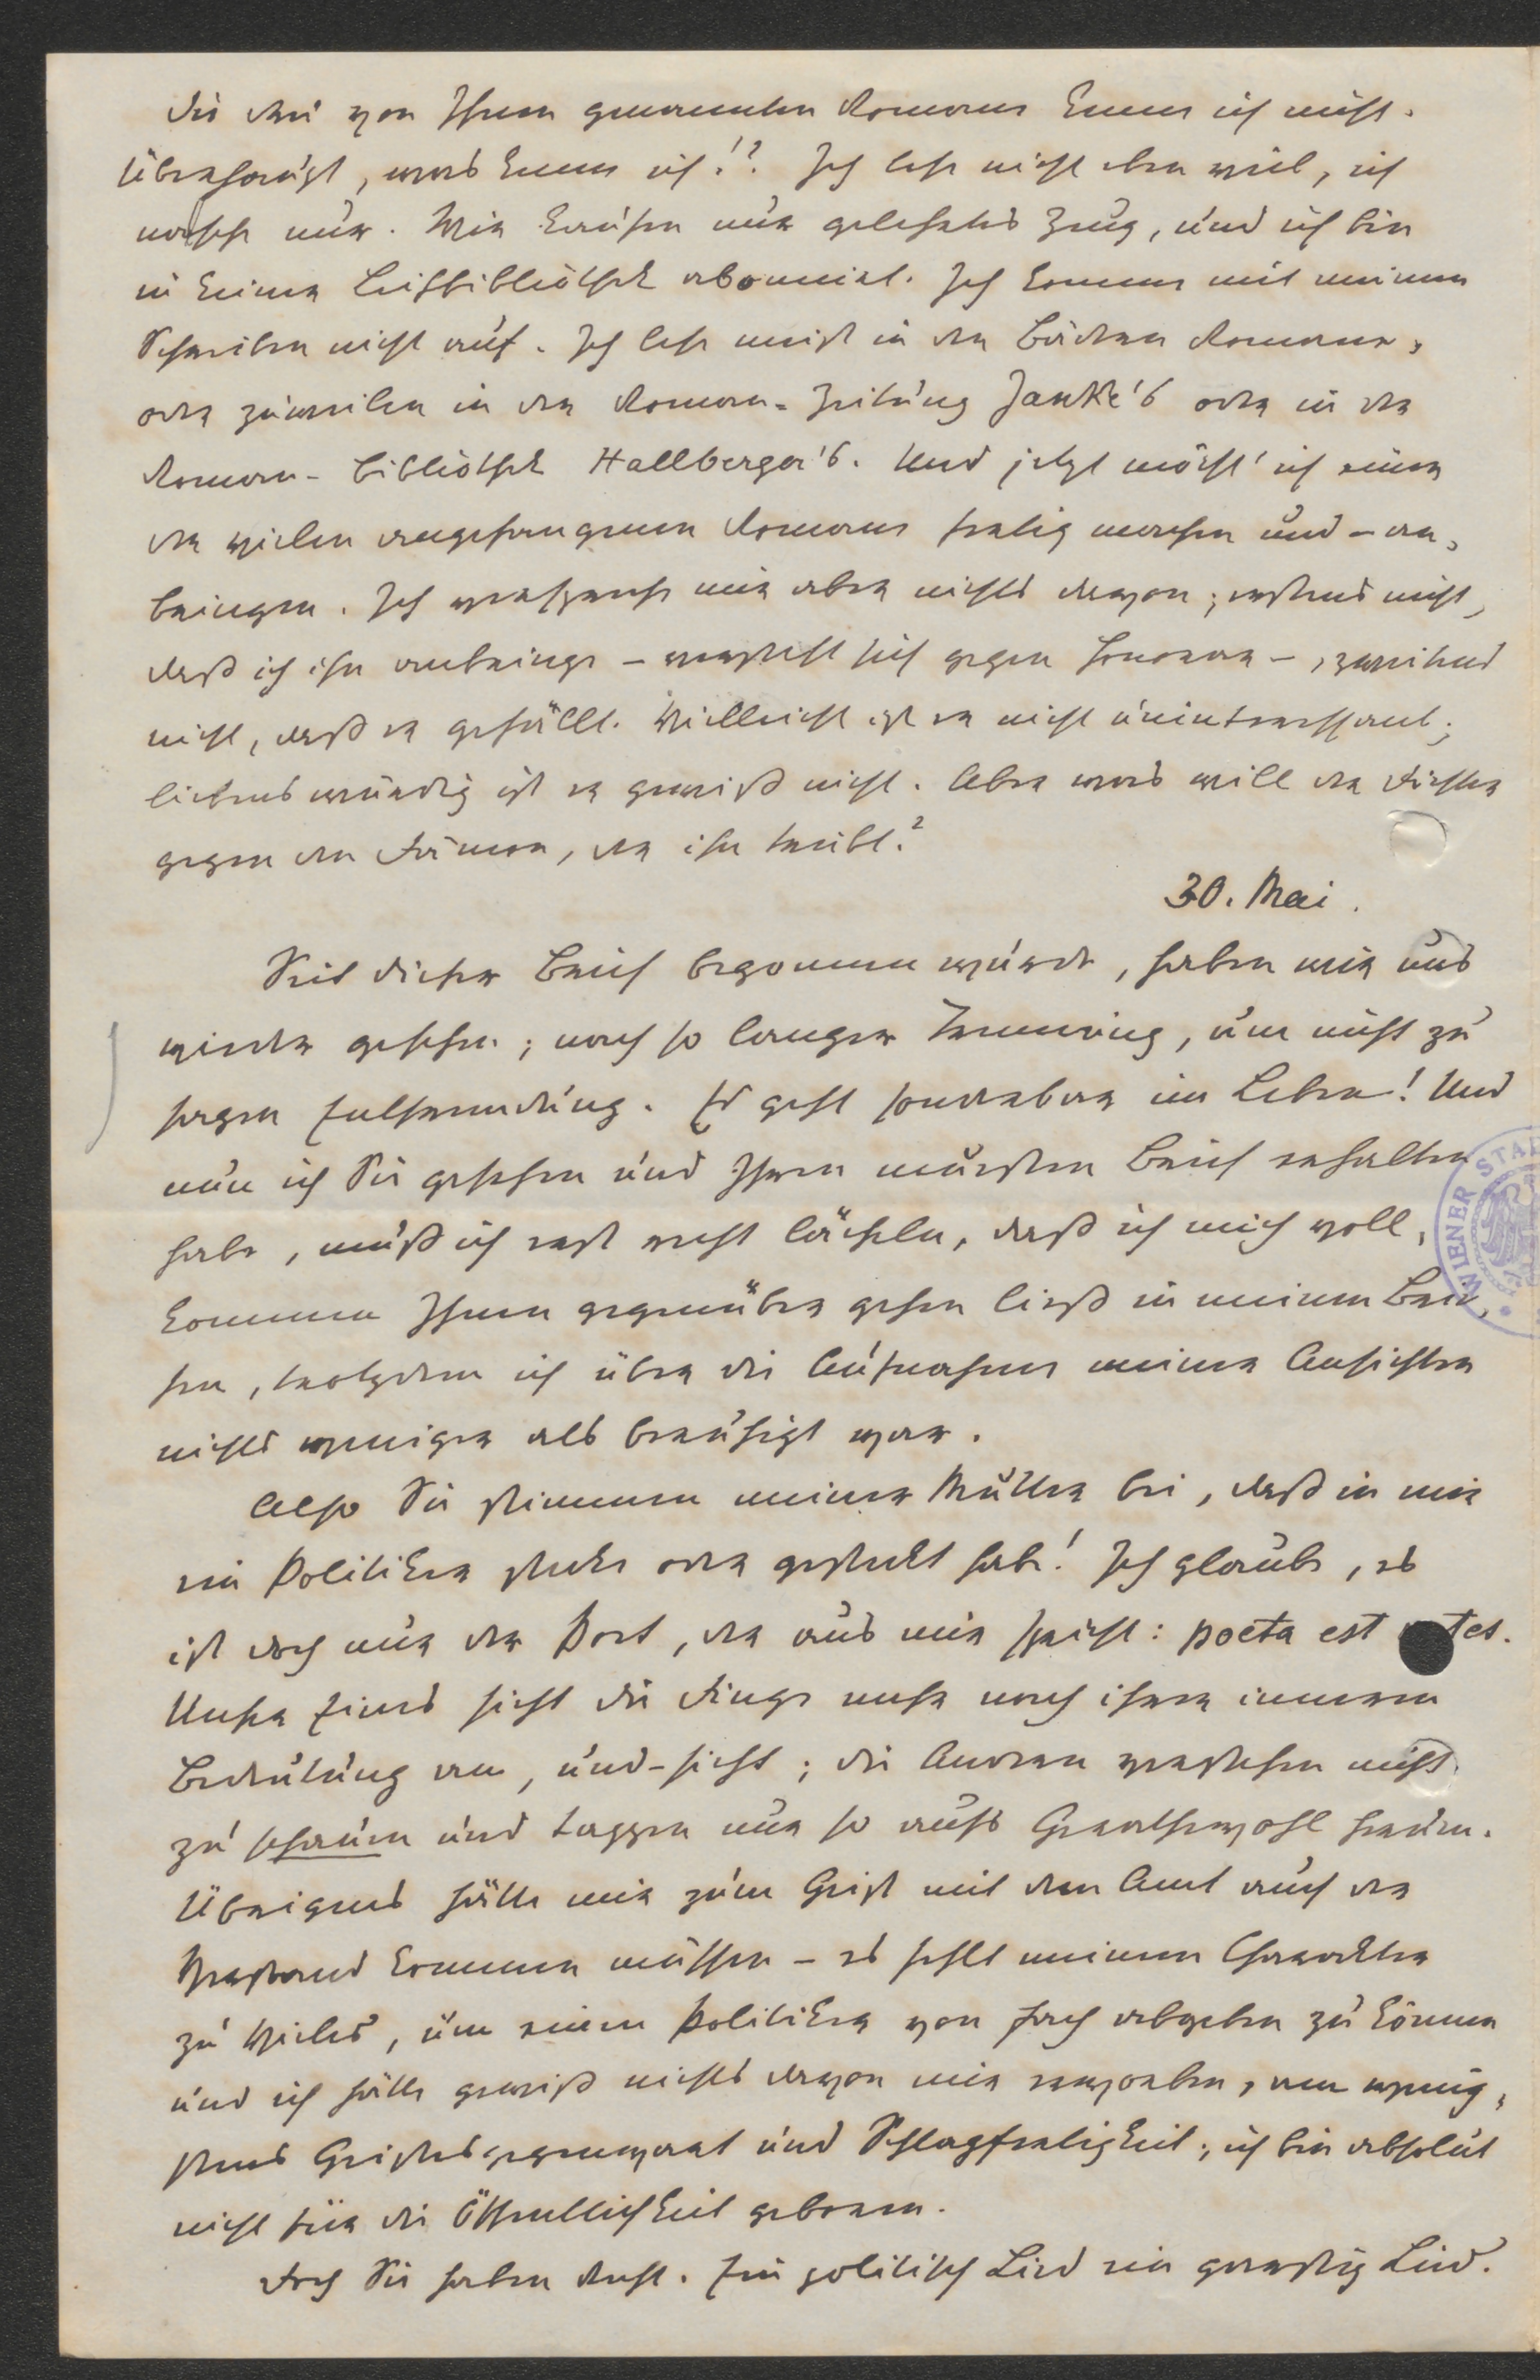 Die drei von Ihnen genannten Romane kenne ich nicht.
Überhaupt, was kenne ich!? Ich lese nicht eben viel, ich
nasche nur. Wir kaufen nur gelehrtes Zeug, und ich bin
in keiner Leihbibliothek abonnirt. Ich komme mit meinem
Schreiben nicht auf. Ich lese meist in den Bädern Romane,
oder zuweilen in der Roman-Zeitung Janke's oder in der
Roman-Bibliothek Hallberger's. Und jetzt möcht' ich einen
der vielen angefangenen Romane fertig machen und – an-
bringen. Ich verspreche mir aber nichts davon; erstens nicht,
daß ich ihn anbringe – versteht sich gegen Honorar –, zweitens
nicht, daß er gefällt. Vielleicht ist er nicht uninteressant;
liebenswürdig ist er gewiß nicht. Aber was will der Dichter
gegen den Dämon, der ihn treibt?
30. Mai.
Seit dieser Brief begonnen wurde, haben wir uns
wieder gesehen; nach so langer Trennung, um nicht zu
sagen Entfremdung. Es geht sonderbar im Leben! Und
nun ich Sie gesehen und Ihren neuesten Brief erhalten
habe, muß ich erst recht lächeln, daß ich mich voll-
kommen Ihnen gegenüber gehen ließ in meinem Brie-
fen, trotzdem ich über die Aufnahme meiner Ansichten
nichts weniger als beruhigt war.
Also Sie stimmen meiner Mutter bei, daß in mir
ein Politiker stecke oder gesteckt habe! Ich glaube, es
ist doch nur der Poet, der aus mir spricht: poeta est vates.
Unser Eins sieht die Dinge mehr nach ihrer inneren
Bedeutung an, und – sieht; die Andern verstehen nicht
zu schauen und tappen nur so aufs Gerathewohl herum.
Übrigens hätte mir zum Geist mit dem Amt auch der
Verstand kommen müssen – es fehlt meinem Charakter
zu Vieles, um einen Politiker von Fach abgeben zu können
und ich hätte gewiß nichts davon mir erworben, am wenig-
stens Geistesgegenwart und Schlagfertigkeit; ich bin absolut
nicht für die Öffentlichkeit geboren.
Doch Sie haben Recht. Ein politisch Lied ein garstig Lied.
WIENER STA